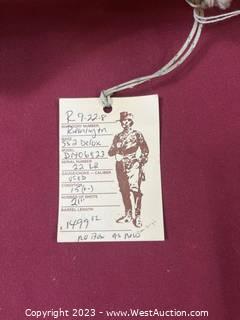 R 9-22-8
INVENTORY NUMBER
Remington
MAKE
552 Delux
MODEL
SERIAL NUMBER
22 LR
GAUGE/CHOKE - CALIBER
USED
CONDITION
15 (+)
NUMBER OF SHOTS
21"
BARREL LENGTH
$1499.02
NO Box as New
Copyright 2023 - WestAuction.com